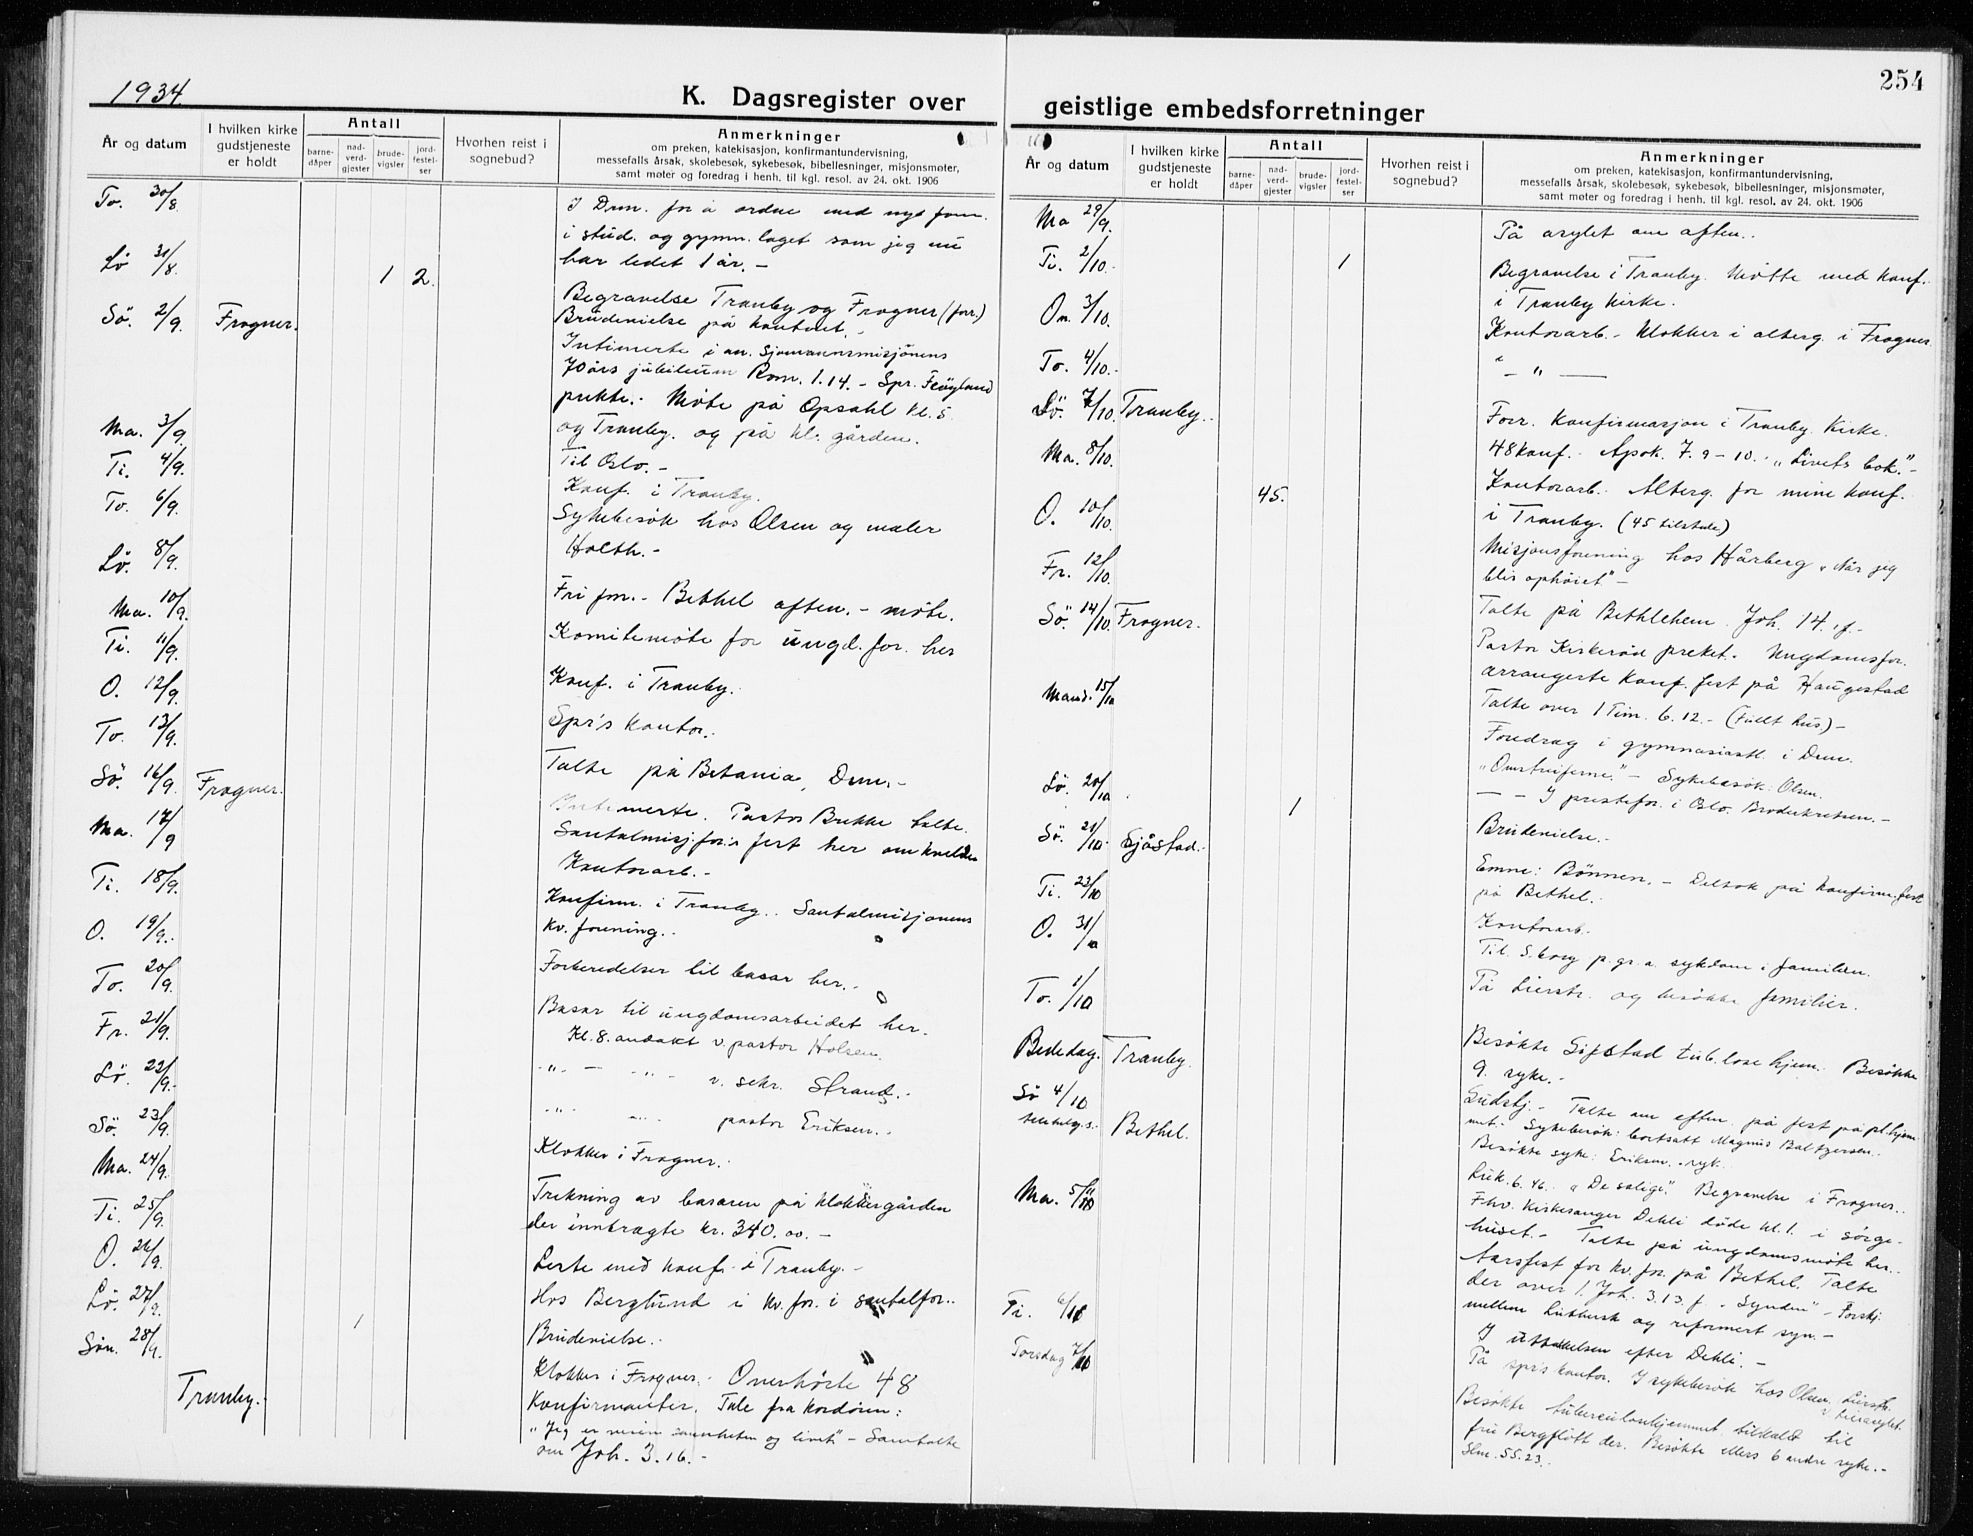 1934
K. Dagsregister over
År og datum
I hvilken kirke gudstjeneste er holdt
Antall
barne-dåper
nad-verd-gjester
brude-vigsler
jord-festel-ser
Hvorhen reist i sognebud?
Anmerkninger
om preken, katekisasjon, konfirmantundervisning,
messefalls årsak, skolebesøk, sykebesøk, bibellesninger, misjonsmøter,
samt møter og foredrag i henh. til kgl. resol. av 24. okt. 1906
To. 30/8.
I Drm. for å ordne med nye
i stud. og gymn. laget som jeg nu
Lö 31/8. 1 2.
har ledet 1 år. -
Begravelse Tranby og Frogner (forr.)
Sö. 2/9. Frogner.
Brudevielse på kontoret. -
Intimerte i an. Sjømannsmisjonens
70 års jubileum Rom. 1.14. - Spr. Fløgland
prekte. - Møte på Opsahl kl. 5
Ma. 3/9.
og Tranby. og på kl. gården.
Ti. 4/9.
Til Oslo. -
To. 6/9.
Konf. i Tranby.
Sykebesøk hos Olsen og maler
Lö. 8/9.
Holth. -
Ma. 10/9.
Fri fm. - Bethel aften. - møte.
Ti. 11/9.
Komitemøte for ungd. for. her
O. 12/9.
Konf. i Tranby.
To. 13/9.
Spr's kontor.
Sö. 16/9. Frogner.
Talte på Betania, Drm. -
Ma. 17/9
Intimerte. Pastor Brekke talte.
Santalmisj. for's fest her om kvelden
Ti. 18/9.
Kontorarb. -
O. 19/9.
Konfirm. i Tranby. Santalmisjonens
kv. forening.
To. 20/9.
Forberedelser til basar her.
Fr. 21/9.
Basar til ungdomsarbeidet her.
Kl. 8. andakt v. pastor Holsen.
Lö. 22/9.
-"- - -"- v. sekr. Strand. -
Sö. 23/9.
-"- -"- pastor Eriksen. -
Ma. 24/9.
Klokker i Frogner.
Ti. 25/9.
Trekning av basaren på klokkergården
der innbragte kr. 340.00. -
O. 26/9.
Leste med konf. i Tranby. -
Lö. 27/9.
Hos Berglund i kv. for. i santalfor..
Søn. 28/9. 1
Brudevielse.
Klokker i Frogner. Overhörte 48
Tranby.
Konfirmanter. Tale fra kordören:
"Jeg er veien sannheten og livet" - Samtalte
om Joh. 3.16. -
254
geistlige embedsforretninger
År og datum
I hvilken kirke gudstjeneste er holdt
Antall
barne-dåper
nad-verd-gjester
brude-vigsler
jord-festel-ser
Hvorhen reist i sognebud?
Anmerkninger
om preken, katekisasjon, konfirmantundervisning,
messefalls årsak, skolebesøk, sykebesøk, bibellesninger, misjonsmøter,
samt møter og foredrag i henh. til kgl. resol. av 24. okt. 1906
Ma 29/9.
På asylet om aften..
Ti. 2/10. 1
Begravelse i Tranby. Møtte med konf.
i Tranby Kirke.
On. 3/10.
Kontorarb. - Klokker i alterg. i Frogner
To. 4/10.
- " -
Sö. 7/10. Tranby.
Forr. Konfirmasjon i Tranby Kirke.
48 konf. Apok. 7. 9-10. "Livets bok." -
Ma. 8/10. 45.
Kontorarb. Alterg. for mine konf.
i Tranby. (45 tilstede)
O. 10/10.
Misjonsforening hos Hårberg "Når jeg
blir ophöiet" -
Fr. 12/10.
Talte på Bethlehem. Joh. 14.
Sö. 14/10. Frogner.
Pastor Kirkeröd preket. Ungdomsfor.
arrangerte konf. fest på Haugestad
Talte over 1 Tim. 6.12. - (Fullt hus) -
Mand. 15/10
Foredrag i gymnasiastl. i Drm.
Sykebesøk: Olsen.
I prestefor. i Oslo. Broderkretsen. -
Lö. 20/10 1
Brudevielse. -
Sö. 21/10 Sjåstad.
Emne: Bönnen. - Deltok på konfirm. fest
på Bethel.
Ti. 23/10
Kontorarb.
O. 31/10
Til p. gr. a. sykdom i familien.
To. 1/10
På Lierstr. og besøkte familier.
Bededag. Tranby.
Besøkte Sipstad tub.lose hjem. Besøkte
9 syke. -
Sö 4/10 Bethel.
Gudstj. - Talte om aften på fest på pl.hjem
met. Sykebesøk: bortsatt Magnus Baltzersen..
Besøkte syke: Eriksen.
Luk. 6. 46. "De salige." Begravelse i Frogner..
Ma. 5/11
Fhv. Kirkesanger Dehli döde kl. 1. i sørge-
huset. - Talte på ungdomsmøte her..
Aarsfest for kv. for. på Bethel. Talte
der over 1. Joh. 3.13. f. "Synden" - Forskj.
mellem Luthersk og reformert syn. -
Ti. 6/11
I efter Dehli. -
Torsdag 7/10
På spr's kontor. I sykebesøk hos Olsen, Lierstr.
Besøkte tuberculosehjemmet tilkaldt til
fru Bergflött der. Besøkte ellers 6 andre syke. -
Slm. 55.23.